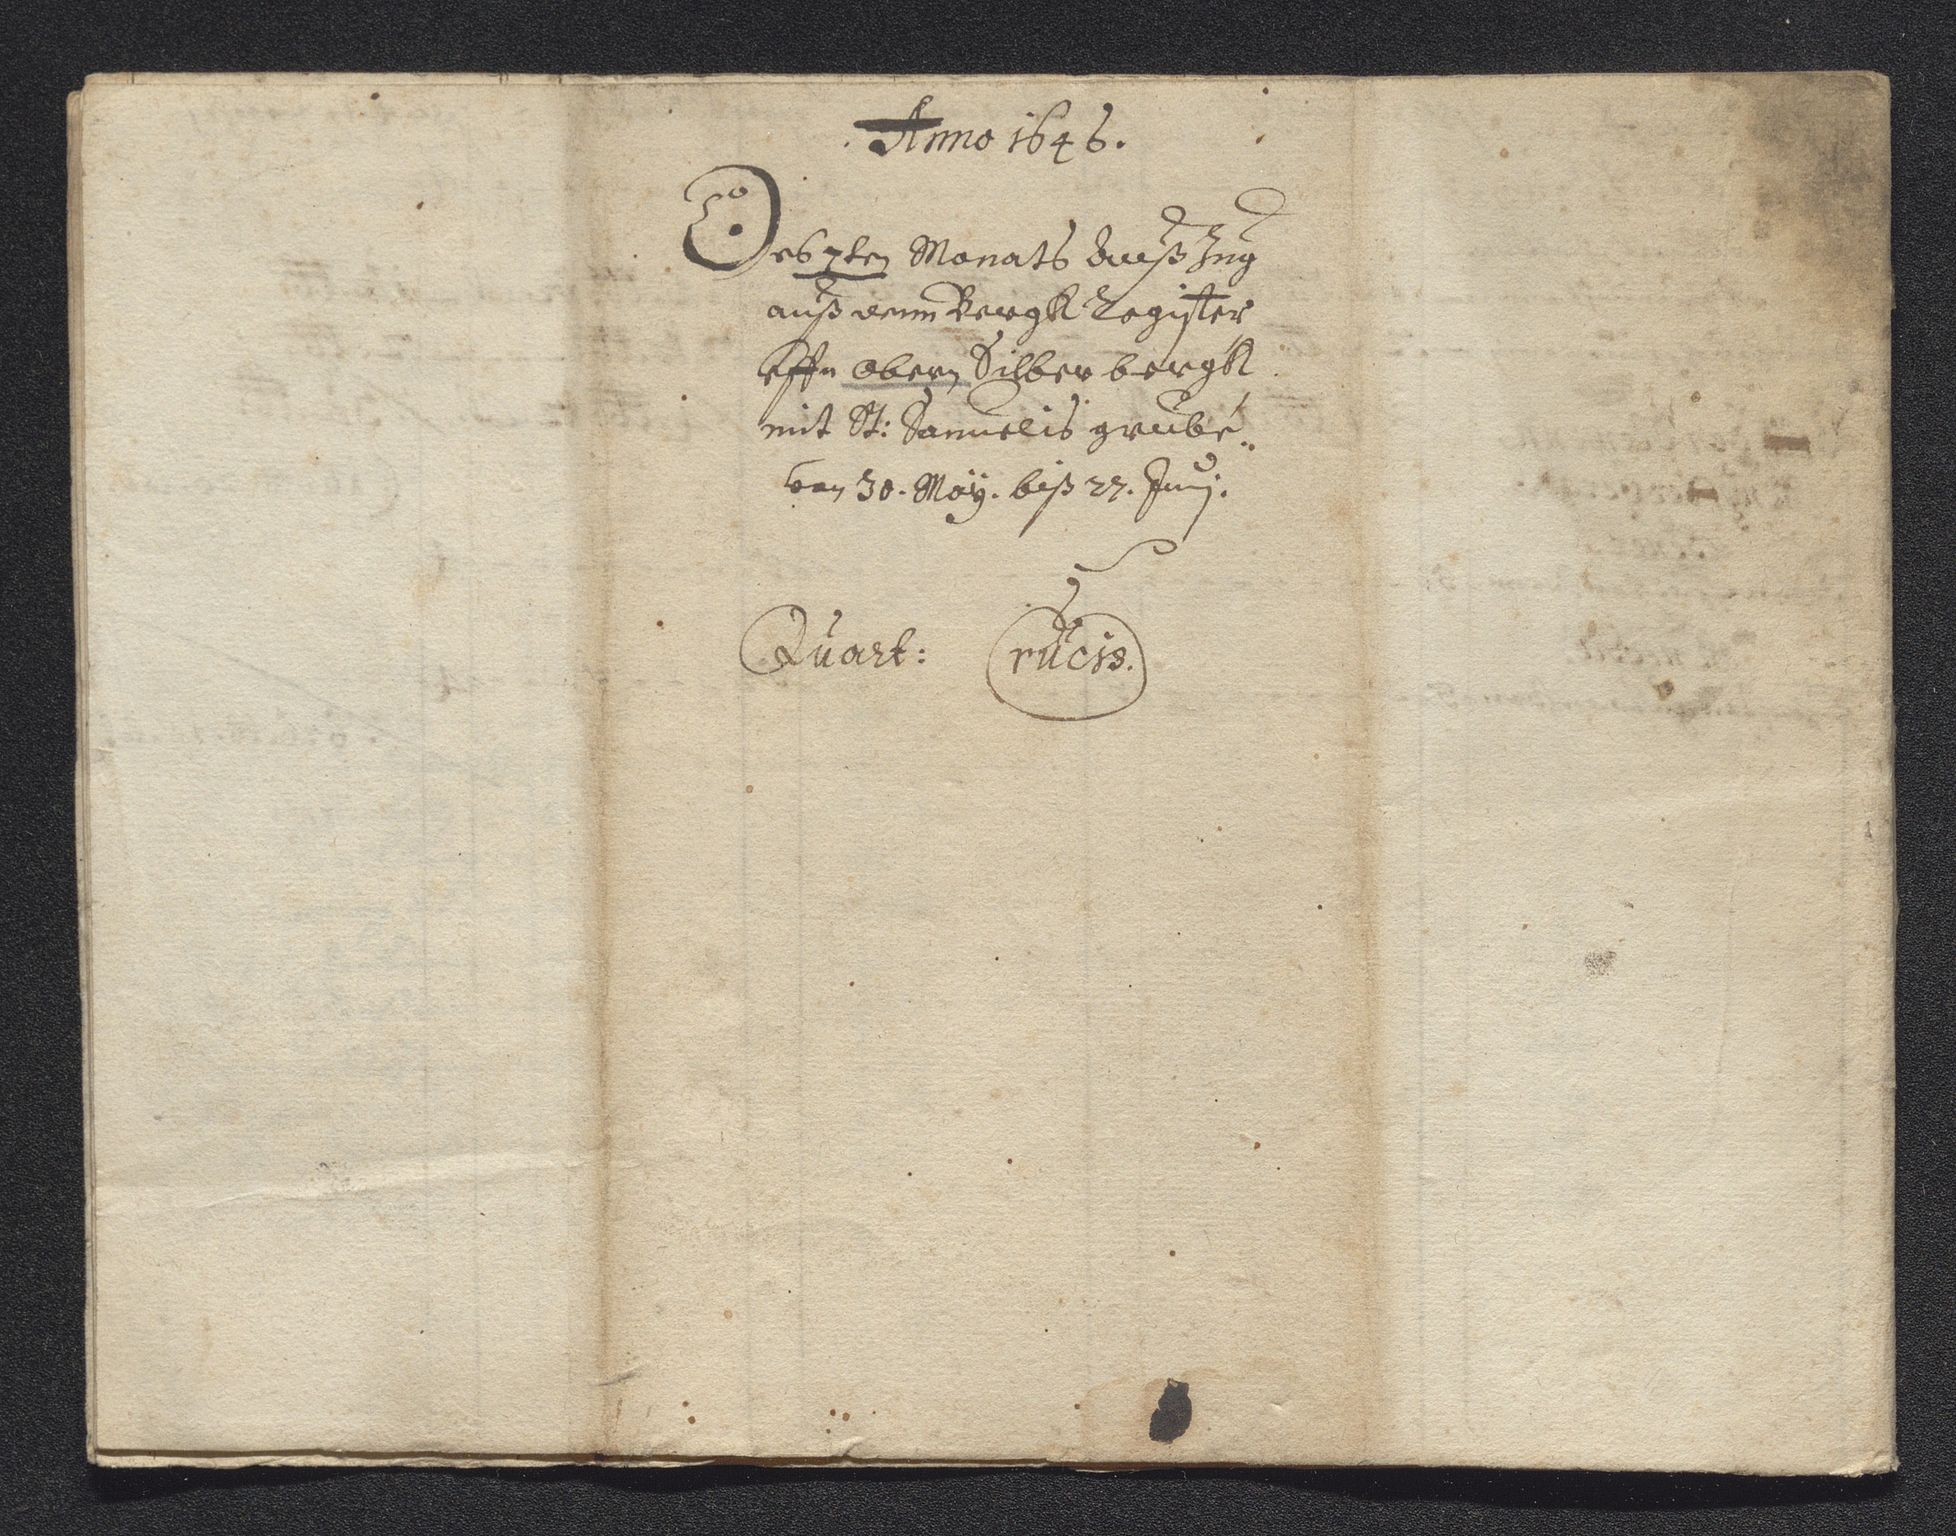 Anno 1646.
Des 7ten Monats Aussß Zug
auß dem Bergk Register
offn Obern Silber bergk
mit St: Samuelis grube
von 30. Maÿ. biß 27. Junj.
Quart: Crucis.